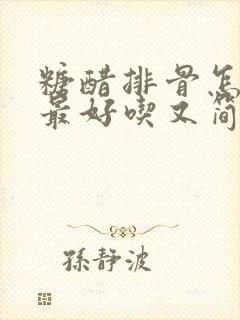 糖醋排骨怎
最好喫又简
孫静波